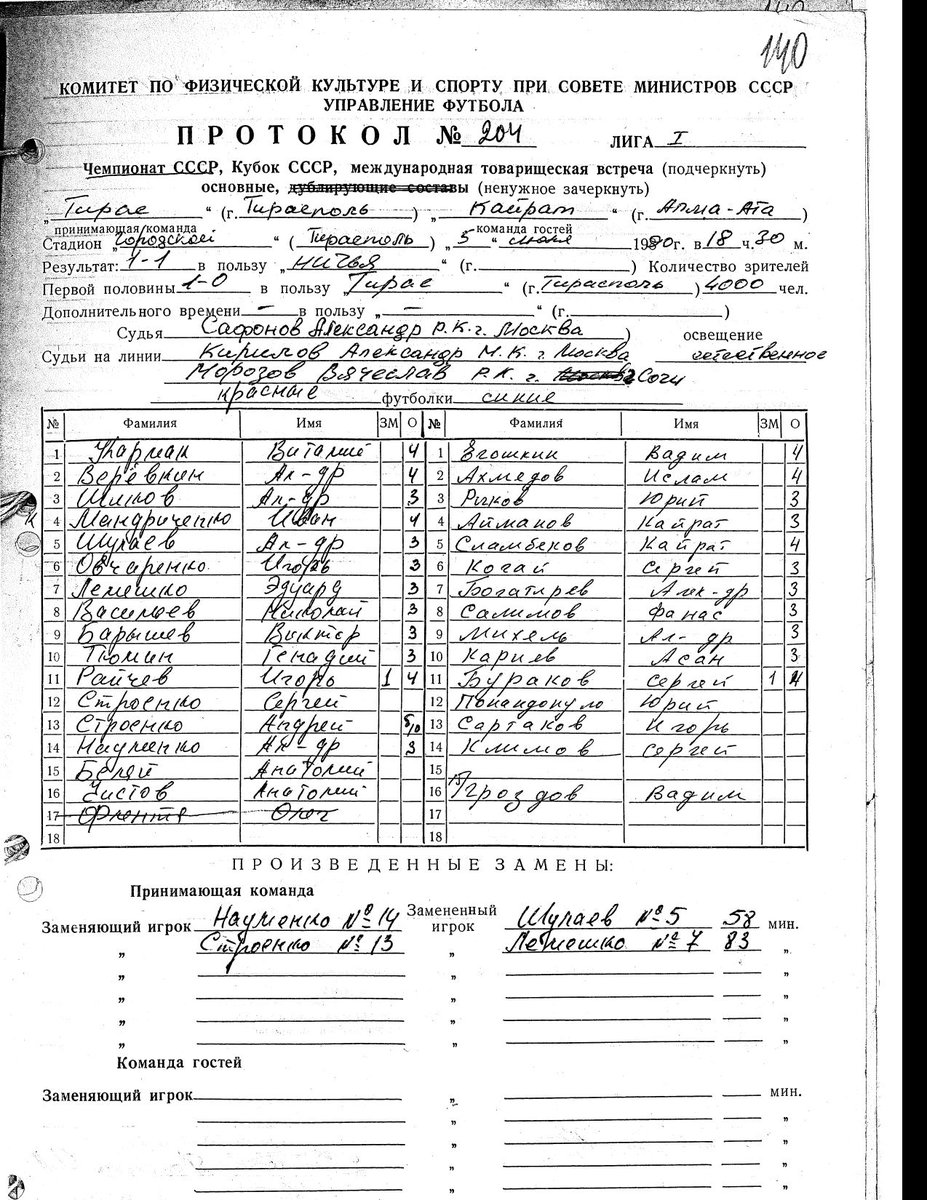 140
КОМИТЕТ ПО ФИЗИЧЕСКОЙ КУЛЬТУРЕ И СПОРТУ ПРИ СОВЕТЕ МИНИСТРОВ СССР
УПРАВЛЕНИЕ ФУТБОЛА
ПРОТОКОЛ № 204 ЛИГА I
Чемпионат СССР, Кубок СССР, международная товарищеская встреча (подчеркнуть)
основные, дублирующие составы (ненужное зачеркнуть)
„Тирас“ (г. Тирасполь) „Кайрат“ (г. Алма-Ата)
принимающая команда команда гостей
Стадион „Городской“ (Тирасполь) „5“ 1990г. в 18 ч. 30 м.
Результат: 1-1 в пользу „НИЧЬЯ“ (г. ) Количество зрителей
Первой половины 1-0 в пользу „Тирас“ (г. Тирасполь) 4000 чел.
Дополнительного времени — в пользу „ — “ (г. )
Судья Сафонов Александр Р.К. г. Москва освещение
Судьи на линии Кирилов Александр М.К. г. Москва естественное
Морозов Вячеслав Р.К. г. Сочи
красные футболки синие
№ Фамилия Имя ЗМ О № Фамилия Имя ЗМ О
1 Виталий 4 1 Егошкин Вадим 4
2 Верёвкин Ал-др 4 2 Ахмедов Ислам 4
3 Ал-др 3 3 Юрий 3
к 4 Мандриченко Иван 4 4 Айманов Кайрат 3
5 Шулаев Ал-др 3 5 Сламбеков Кайрат 4
6 Овчаренко Игорь 3 6 Когай Сергей 3
7 Лемешко Эдуард 3 7 Богатырев Алек-др 3
8 Васильев Николай 3 8 Салимов Фанас 3
9 Барышев Виктор 3 9 Михель Ал-др 3
10 Тюмин Генадий 3 10 Кариев Асан 3
11 Райчев Игорь 1 4 11 Бураков Сергей 1 4
12 Строенко Сергей 12 Юрий
13 Строенко Андрей б/о 13 Сартаков Игорь
14 Науменко Ал-др 3 14 Климов Сергей
15 Белый Анатолий 15
16 Чистов Анатолий 16 15) Гроздов Вадим
17 Олег 17
18 18
ПРОИЗВЕДЕННЫЕ ЗАМЕНЫ:
Принимающая команда
Заменяющий игрок Науменко № 14 Замененный игрок Шулаев № 5 58 мин.
„ Строенко № 13 „ Лемешко № 7 83 „
„ „ — „
„ „ — „
„ „ — „
„ „ — „
Команда гостей
Заменяющий игрок „ мин.
„ „ „
„ „ „
„ „ „
„ „ „